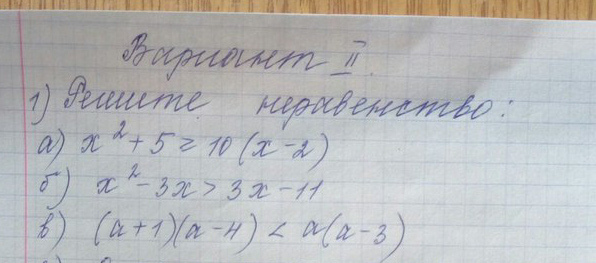 Вариант II.
1) Решите неравенство:
а) x² + 5 ≥ 10 (x - 2)
б) x² - 3x > 3x - 11
в) (a + 1)(a - 4) < a(a - 3)